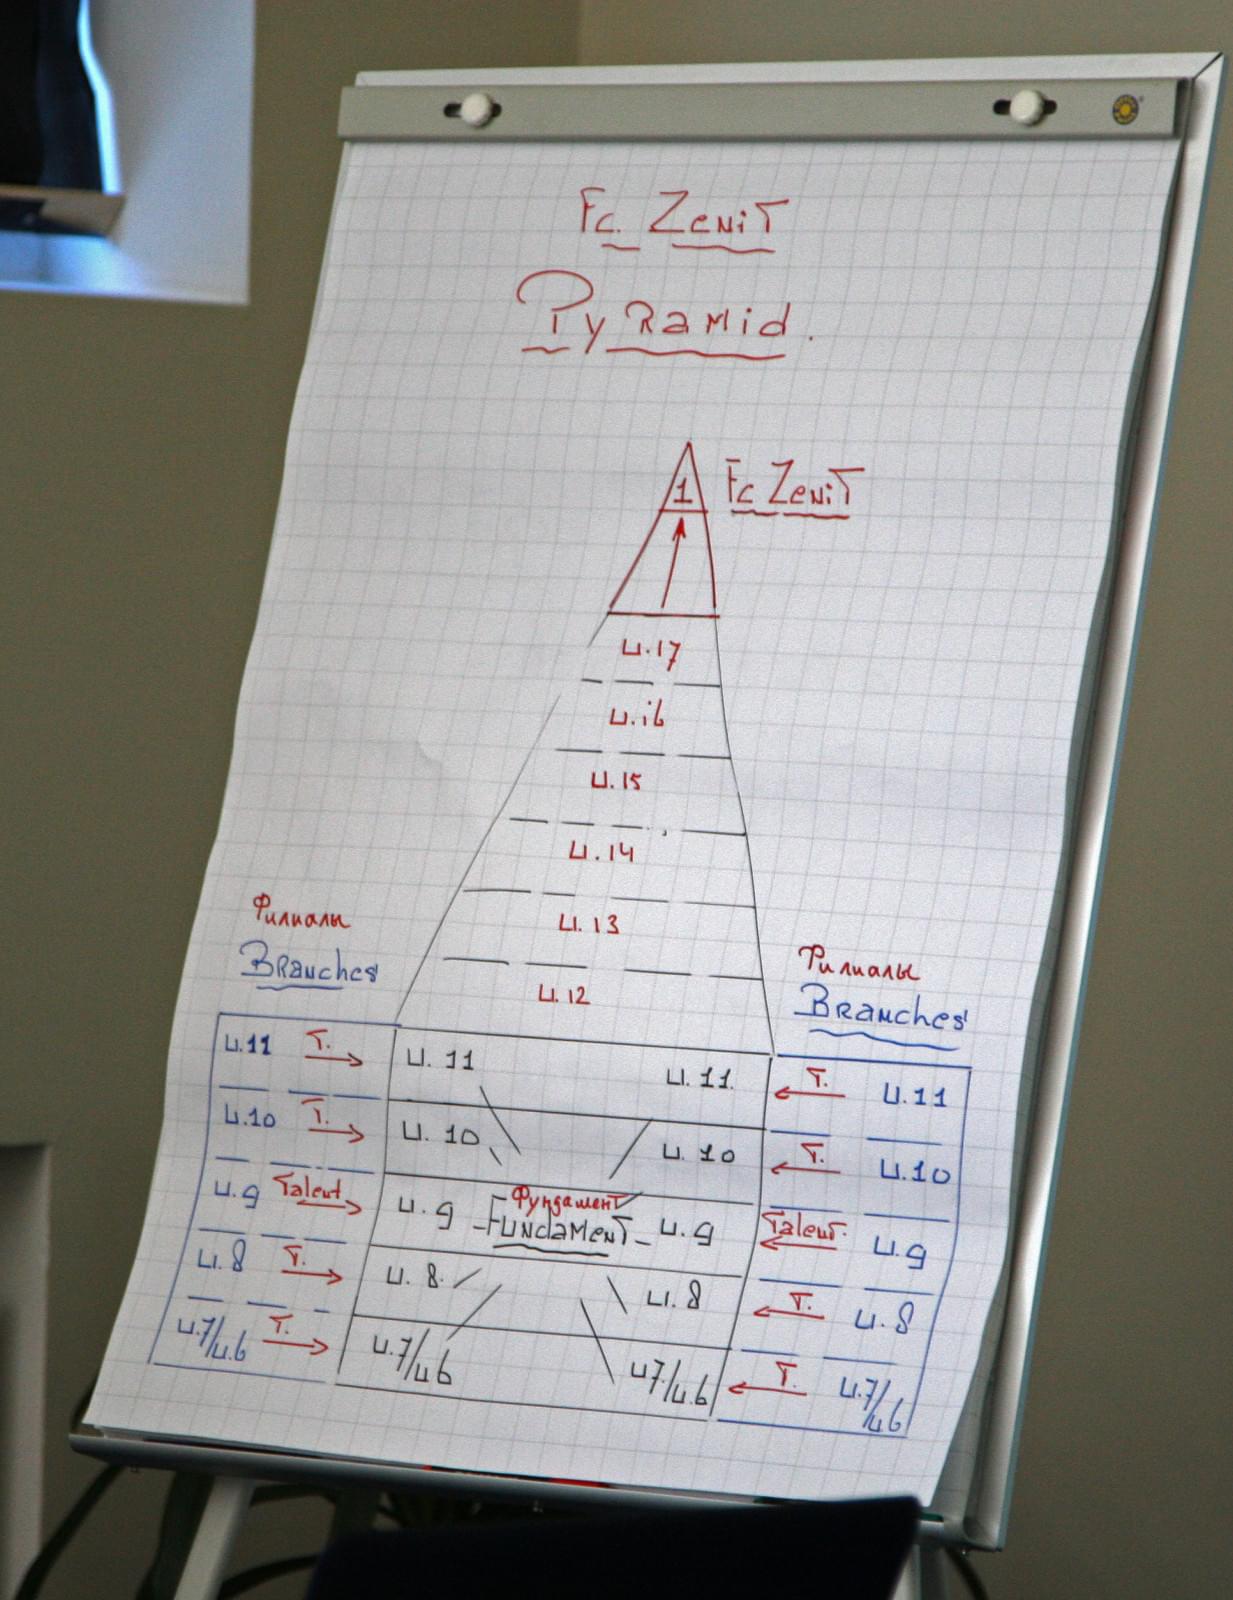 Fc. ZeniT
PyRamid.
1 Fc ZeniT
u.17
u.16
u.15
u.14
u.13
u.12
Филиалы
Branches
Филиалы
Branches
u.11 T. u. 11 u. 11. T. u.11
u.10 T. u. 10 u. 10 T. u.10
u.9 Talent u. 9 Фундамент u. 9 Talent. u.9
FundamenT
u.8 T. u. 8. u. 8 T. u. 8
u.7/u.6 T. u.7/u6 u7/u.6 T. u.7/u6